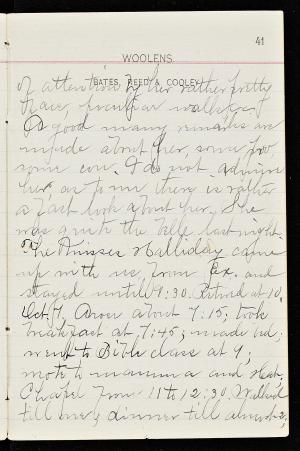 41
WOOLENS.
BATES, REED & COOLEY
of attention by her rather pretty
face, peculiar walk &c.
A good many remarks are
made about her, some pro,
some con. I do not admire
her, as to me there is rather
a fast look about her. She
was quite the belle last night.
The Misses Halliday came
up with us from Ex. and
stayed until 9:30. Retired at 10.
Oct. 7. Arose about 7:15; took
breakfast at 7:45; made bed;
went to Bible class at 9;
wrote to mamma and
Chapel from 11 to 12:30. Walked
till one; dinner till almost 2;